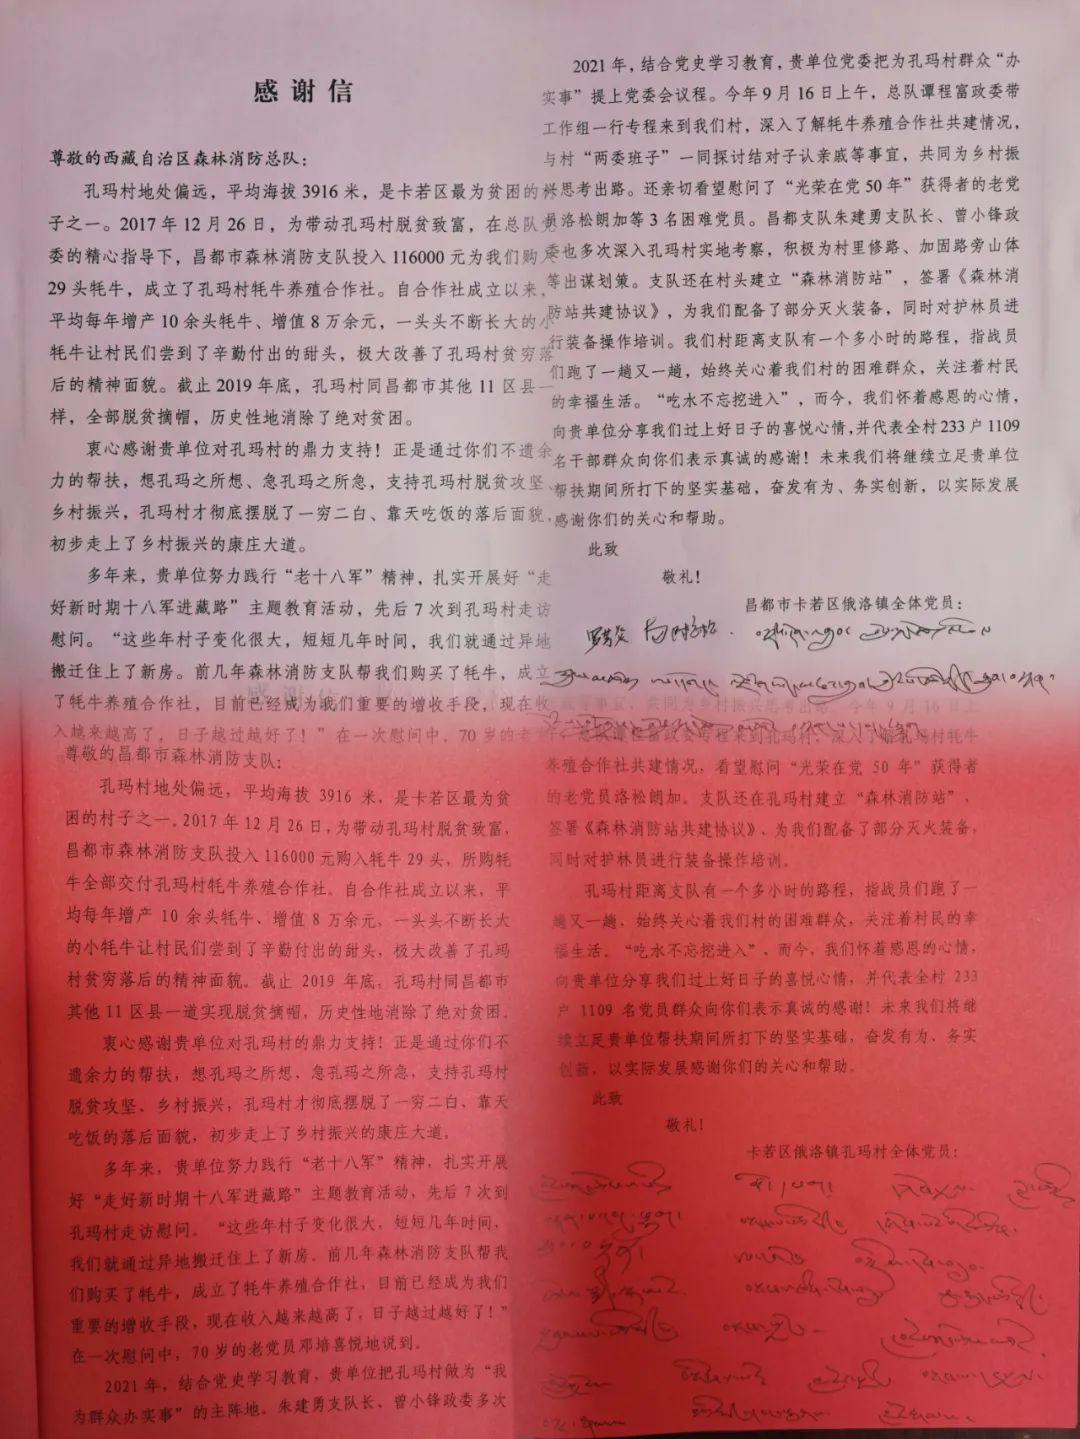 感谢信
尊敬的西藏自治区森林消防总队：
孔玛村地处偏远，平均海拔 3916 米，是卡若区最为贫困的村
子之一。2017 年 12 月 26 日，为带动孔玛村脱贫致富，在总队党
委的精心指导下，昌都市森林消防支队投入 116000 元为我们购入
29 头牦牛，成立了孔玛村牦牛养殖合作社。自合作社成立以来，
平均每年增产 10 余头牦牛、增值 8 万余元，一头头不断长大的小
牦牛让村民们尝到了辛勤付出的甜头，极大改善了孔玛村贫穷落
后的精神面貌。截止 2019 年底，孔玛村同昌都市其他 11 区县一
样，全部脱贫摘帽，历史性地消除了绝对贫困。
衷心感谢贵单位对孔玛村的鼎力支持！正是通过你们不遗余
力的帮扶，想孔玛之所想、急孔玛之所急，支持孔玛村脱贫攻坚、
乡村振兴，孔玛村才彻底摆脱了一穷二白、靠天吃饭的落后面貌，
初步走上了乡村振兴的康庄大道。
多年来，贵单位努力践行“老十八军”精神，扎实开展好“走
好新时期十八军进藏路”主题教育活动，先后 7 次到孔玛村走访
慰问。“这些年村子变化很大，短短几年时间，我们就通过异地
搬迁住上了新房。前几年森林消防支队帮我们购买了牦牛，成立
了牦牛养殖合作社，目前已经成为我们重要的增收手段，现在收
入越来越高了，日子越过越好了！”在一次慰问中，70 岁的老
2021 年，结合党史学习教育，贵单位党委把为孔玛村群众“办
实事”提上党委会议程。今年 9 月 16 日上午，总队谭程富政委带
工作组一行专程来到我们村，深入了解牦牛养殖合作社共建情况，
与村“两委班子”一同探讨结对子认亲戚等事宜，共同为乡村振
兴思考出路。还亲切看望慰问了“光荣在党 50 年”获得者的老党
员洛松朗加等 3 名困难党员。昌都支队朱建勇支队长、曾小锋政
委也多次深入孔玛村实地考察，积极为村里修路、加固路旁山体
等出谋划策。支队还在村头建立“森林消防站”，签署《森林消
防站共建协议》，为我们配备了部分灭火装备，同时对护林员进
行装备操作培训。我们村距离支队有一个多小时的路程，指战员
们跑了一趟又一趟，始终关心着我们村的困难群众，关注着村民
的幸福生活。“吃水不忘挖进入”，而今，我们怀着感恩的心情，
向贵单位分享我们过上好日子的喜悦心情，并代表全村 233 户 1109
名干部群众向你们表示真诚的感谢！未来我们将继续立足贵单位
帮扶期间所打下的坚实基础，奋发有为、务实创新，以实际发展
感谢你们的关心和帮助。
此致
敬礼！
昌都市卡若区俄洛镇全体党员：
感谢信
尊敬的昌都市森林消防支队：
孔玛村地处偏远，平均海拔 3916 米，是卡若区最为贫
困的村子之一。2017 年 12 月 26 日，为带动孔玛村脱贫致富，
昌都市森林消防支队投入 116000 元购入牦牛 29 头，所购牦
牛全部交付孔玛村牦牛养殖合作社。自合作社成立以来，平
均每年增产 10 余头牦牛、增值 8 万余元，一头头不断长大
的小牦牛让村民们尝到了辛勤付出的甜头，极大改善了孔玛
村贫穷落后的精神面貌。截止 2019 年底，孔玛村同昌都市
其他 11 区县一道实现脱贫摘帽，历史性地消除了绝对贫困。
衷心感谢贵单位对孔玛村的鼎力支持！正是通过你们不
遗余力的帮扶，想孔玛之所想、急孔玛之所急，支持孔玛村
脱贫攻坚、乡村振兴，孔玛村才彻底摆脱了一穷二白、靠天
吃饭的落后面貌，初步走上了乡村振兴的康庄大道。
多年来，贵单位努力践行“老十八军”精神，扎实开展
好“走好新时期十八军进藏路”主题教育活动，先后 7 次到
孔玛村走访慰问。“这些年村子变化很大，短短几年时间，
我们就通过异地搬迁住上了新房。前几年森林消防支队帮我
们购买了牦牛，成立了牦牛养殖合作社，目前已经成为我们
重要的增收手段，现在收入越来越高了，日子越过越好了！”
在一次慰问中，70 岁的老党员邓培喜悦地说到。
2021 年，结合党史学习教育，贵单位把孔玛村做为“我
为群众办实事”的主阵地。朱建勇支队长、曾小锋政委多次
等事宜，共同为乡村振兴思考出路。今年 9 月 16 日上
总队谭程富政委专程来到孔玛村，深入了解孔玛村牦牛
养殖合作社共建情况，看望慰问“光荣在党 50 年”获得者
的老党员洛松朗加。支队还在孔玛村建立“森林消防站”，
签署《森林消防站共建协议》，为我们配备了部分灭火装备，
同时对护林员进行装备操作培训。
孔玛村距离支队有一个多小时的路程，指战员们跑了一
趟又一趟，始终关心着我们村的困难群众，关注着村民的幸
福生活。“吃水不忘挖进入”，而今，我们怀着感恩的心情，
向贵单位分享我们过上好日子的喜悦心情，并代表全村 233
户 1109 名党员群众向你们表示真诚的感谢！未来我们将继
续立足贵单位帮扶期间所打下的坚实基础，奋发有为、务实
创新，以实际发展感谢你们的关心和帮助。
此致
敬礼！
卡若区俄洛镇孔玛村全体党员：